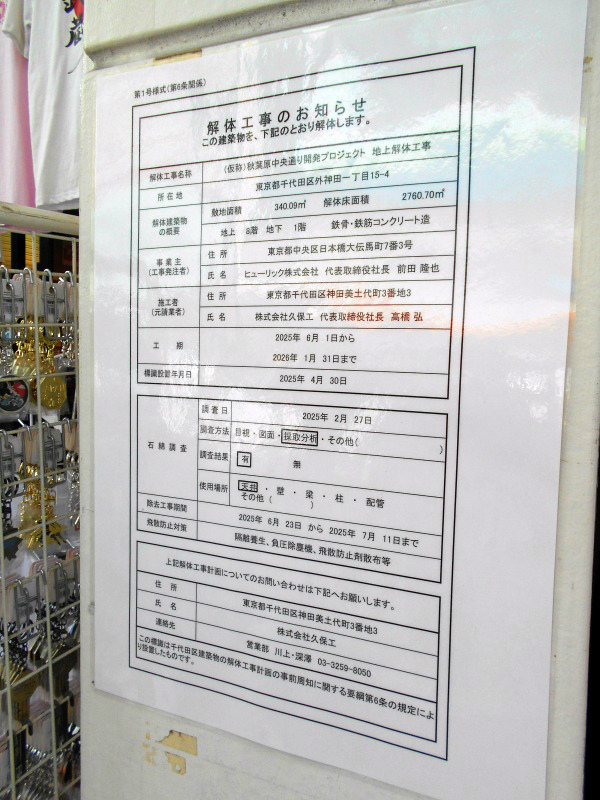 蔵
第1号様式(第6条関係)
解体工事のお知らせ
この建築物を、下記のとおり解体します。
解体工事名称 (仮称)秋葉原中央通り開発プロジェクト 地上解体工事
所在地 東京都千代田区外神田一丁目15-4
解体建築物の概要 敷地面積 340.09㎡ 解体床面積 2760.70㎡
地上 8階 地下 1階 鉄骨・鉄筋コンクリート造
事業主(工事発注者) 住所 東京都中央区日本橋大伝馬町7番3号
氏名 ヒューリック株式会社 代表取締役社長 前田 隆也
施工者(元請業者) 住所 東京都千代田区神田美土代町3番地3
氏名 株式会社久保工 代表取締役社長 高橋 弘
工期 2025年 6月 1日から
2026年 1月 31日まで
標識設置年月日 2025年 4月 30日
石綿調査 調査日 2025年 2月 27日
調査方法 目視・図面・採取分析・その他( )
調査結果 有 無
使用場所 天井・壁・梁・柱・配管
その他( )
除去工事期間 2025年 6月 23日 から 2025年 7月 11日まで
飛散防止対策 隔離養生、負圧除塵機、飛散防止剤散布等
上記解体工事計画についてのお問い合わせは下記へお願いします。
住所 東京都千代田区神田美土代町3番地3
氏名 株式会社久保工
連絡先 営業部 川上・深澤 03-3259-8050
この標識は千代田区建築物の解体工事計画の事前周知に関する要綱第6条の規定によ
り設置したものです。